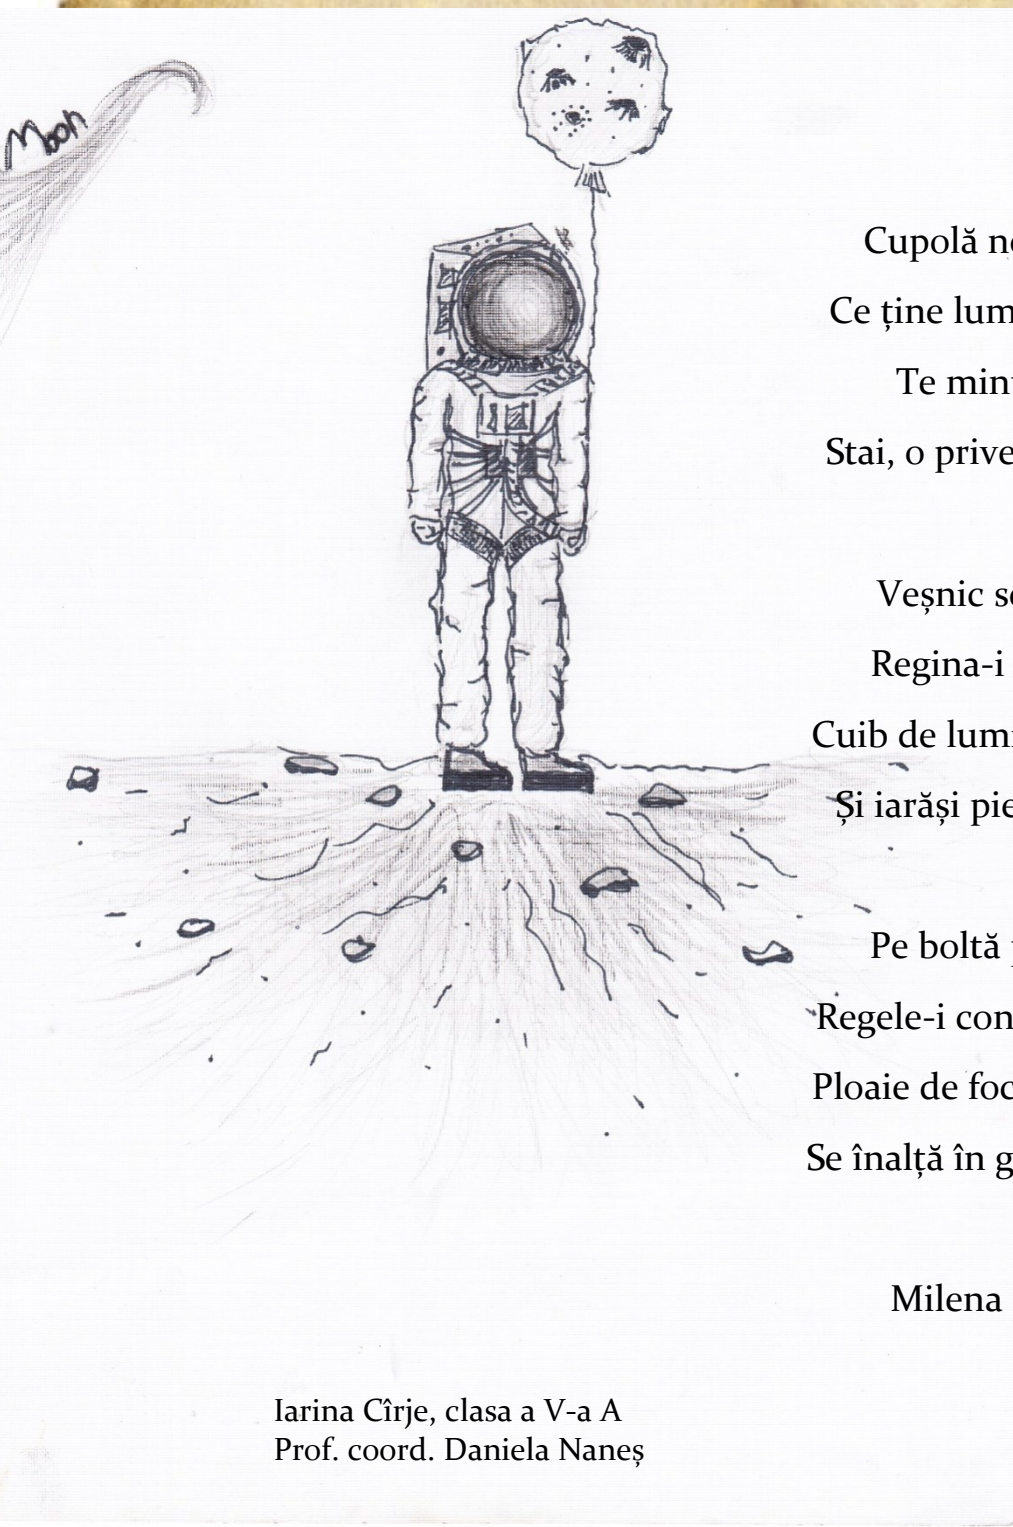 Moon
Cupolă
Ce ține
Te
Stai, o
Veșnic
Regina-i
Cuib de
Și iarăși
Pe boltă
Regele-i
Ploaie de
Se înalță în
Milena
Iarina Cîrje, clasa a V-a A
Prof. coord. Daniela Naneș